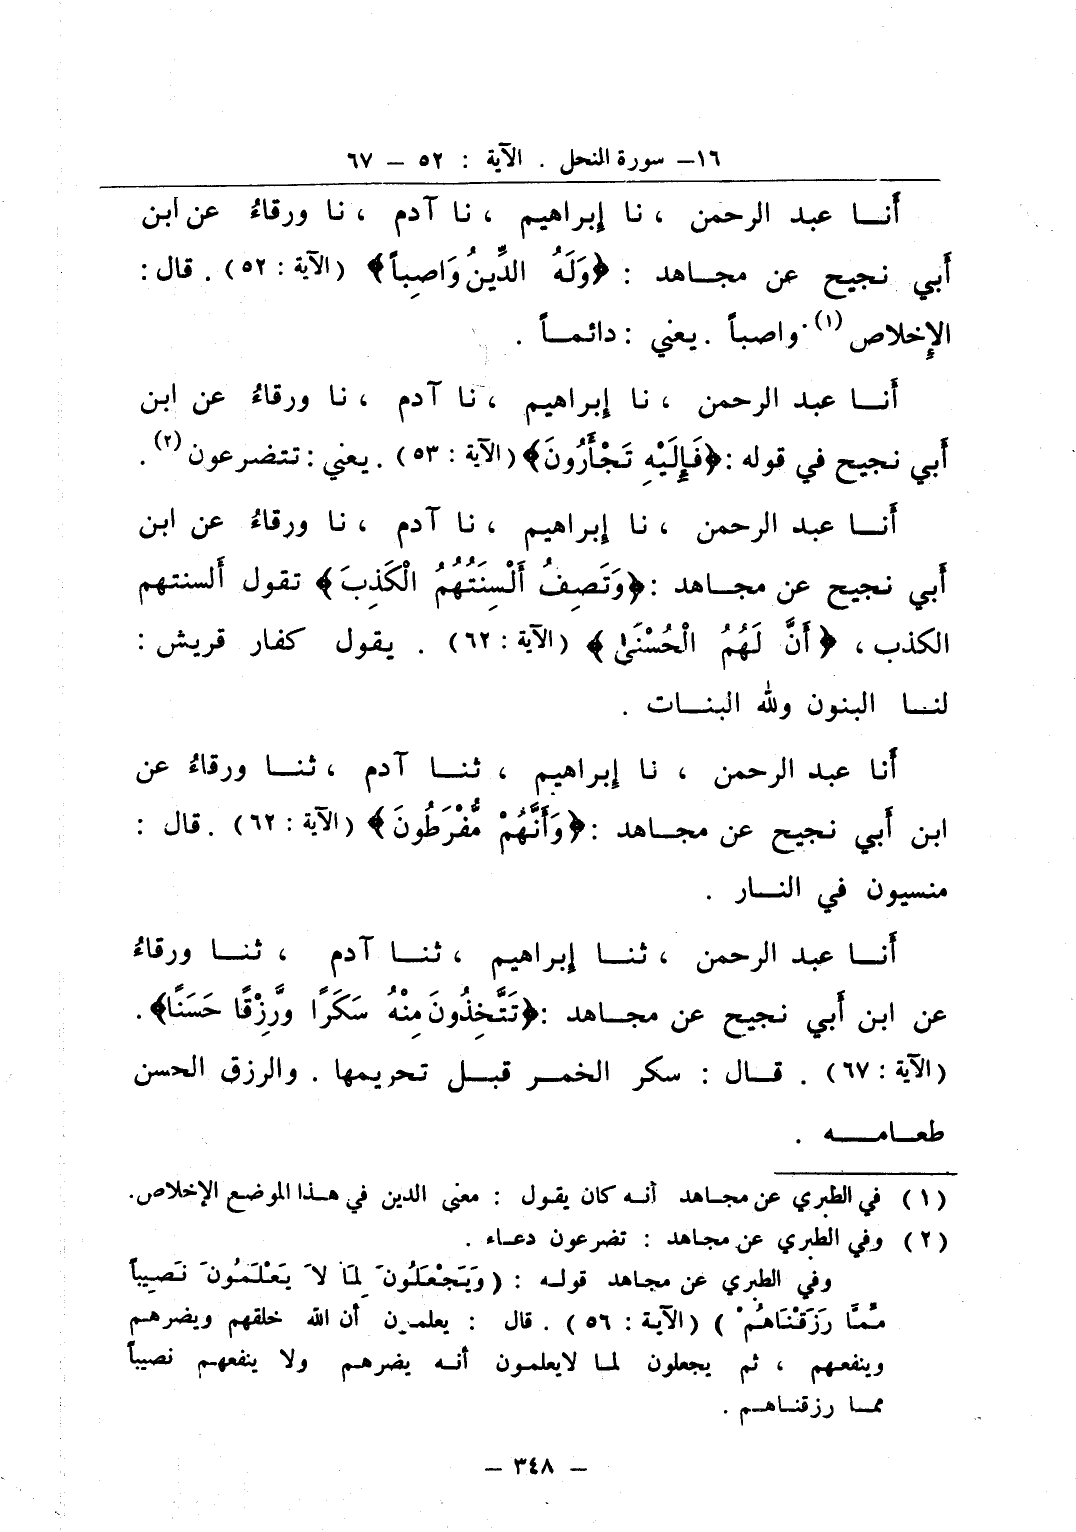 ١٦– سورة النحل . الآية : ٥٢ – ٦٧
أنا عبد الرحمن ، نا إبراهيم ، نا آدم ، نا ورقاءُ عن ابن
أبي نجيح عن مجاهد : ﴿وَلَهُ الدِّينُ وَاصِباً﴾ (الآية : ٥٢) . قال :
الإِخلاص (١). واصباً . يعني : دائماً .
أنا عبد الرحمن ، نا إبراهيم ، نا آدم ، نا ورقاءُ عن ابن
أبي نجيح في قوله : ﴿فَإِلَيْهِ تَجْأَرُونَ﴾ (الآية : ٥٣) . يعني : تتضرعون (٢) .
أنا عبد الرحمن ، نا إبراهيم ، نا آدم ، نا ورقاءُ عن ابن
أبي نجيح عن مجاهد : ﴿وَتَصِفُ أَلْسِنَتُهُمُ الْكَذِبَ﴾ تقول ألسنتهم
الكذب ، ﴿أَنَّ لَهُمُ الْحُسْنَىٰ﴾ (الآية : ٦٢) . يقول كفار قريش :
لنا البنون ولله البنات .
أنا عبد الرحمن ، نا إبراهيم ، ثنا آدم ، ثنا ورقاءُ عن
ابن أبي نجيح عن مجاهد : ﴿وَأَنَّهُمْ مُّفْرَطُونَ﴾ (الآية : ٦٢) . قال :
منسيون في النار .
أنا عبد الرحمن ، ثنا إبراهيم ، ثنا آدم ، ثنا ورقاءُ
عن ابن أبي نجيح عن مجاهد : ﴿تَتَّخِذُونَ مِنْهُ سَكَرًا وَّرِزْقًا حَسَنًا﴾ .
(الآية : ٦٧) . قال : سكر الخمر قبل تحريمها . والرزق الحسن
طعامه .
(١) في الطبري عن مجاهد أنه كان يقول : معنى الدين في هذا الموضع الإخلاص.
(٢) وفي الطبري عن مجاهد : تضرعون دعاء .
وفي الطبري عن مجاهد قوله : (وَيَجْعَلُونَ لِمَا لاَ يَعْلَمُونَ نَصِيباً
مِّمَّا رَزَقْنَاهُمْ ) (الآية : ٥٦) . قال : يعلمون أن الله خلقهم ويضرهم
وينفعهم ، ثم يجعلون لما لايعلمون أنه يضرهم ولا ينفعهم نصيباً
مما رزقناهم .
– ٣٤٨ –